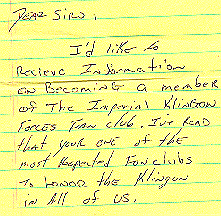 Dear Sirs,
I'd like to
Recieve Information
on Becoming a member
of The Imperial Klingon
Forces Fan club. I've Read
that your one of the
most Respected Fan clubs
To honor the Klingon
in All of us.